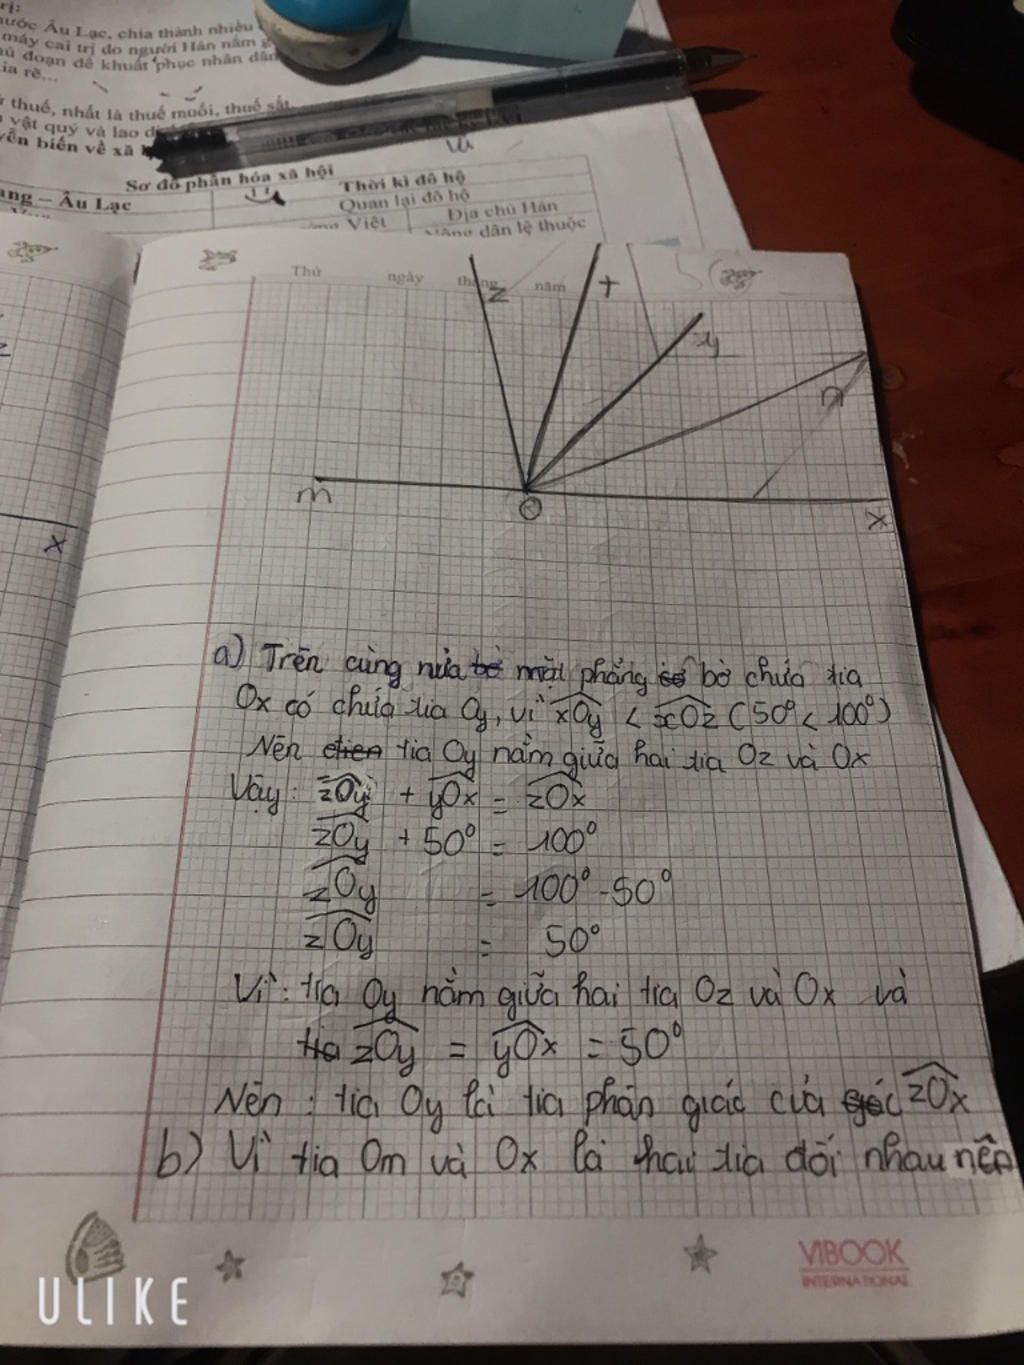 rị:
nước Âu Lạc, chia thành nhiều
máy cai trị do người Hán nắm
đoạn để khuất phục nhân dân
ia rẽ...
thuế, nhất là thuế muối, thuế sắt
vật quý và lao
biến về xã
Sơ đồ phân hóa xã hội
ang – Âu Lạc
Thời kì đô hộ
Quan lại đô hộ
Việt
Địa chủ Hán
dân lệ thuộc
Thứ ngày tháng năm
z
t
y
n
m
O
x
x
a) Trên cùng nửa bờ mặt phẳng có bờ chứa tia
Ox có chứa tia Oy, vì xOy < xOz (50° < 100°)
Nên tia Oy nằm giữa hai tia Oz và Ox
Vậy: zOy + yOx = zOx
zOy + 50° = 100°
zOy = 100° - 50°
zOy = 50°
Vì: tia Oy nằm giữa hai tia Oz và Ox và
tia zOy = yOx = 50°
Nên: tia Oy là tia phân giác của góc zOx
b) Vì tia Om và Ox là hai tia đối nhau nên
VIBOOK
INTERNATIONAL
ULIKE